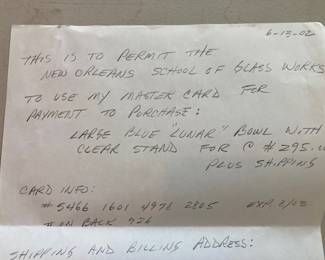 6-13-02
THIS IS TO PERMIT THE
NEW ORLEANS SCHOOL OF GLASS WORKS
TO USE MY MASTER CARD FOR
PAYMENT TO PURCHASE:
LARGE BLUE "LUNAR" BOWL WITH
CLEAR STAND FOR @ $295.
PLUS SHIPPING
CARD INFO:
# 5466 1601 2805 EXP
# ON BACK 926
SHIPPING AND BILLING ADDRESS: